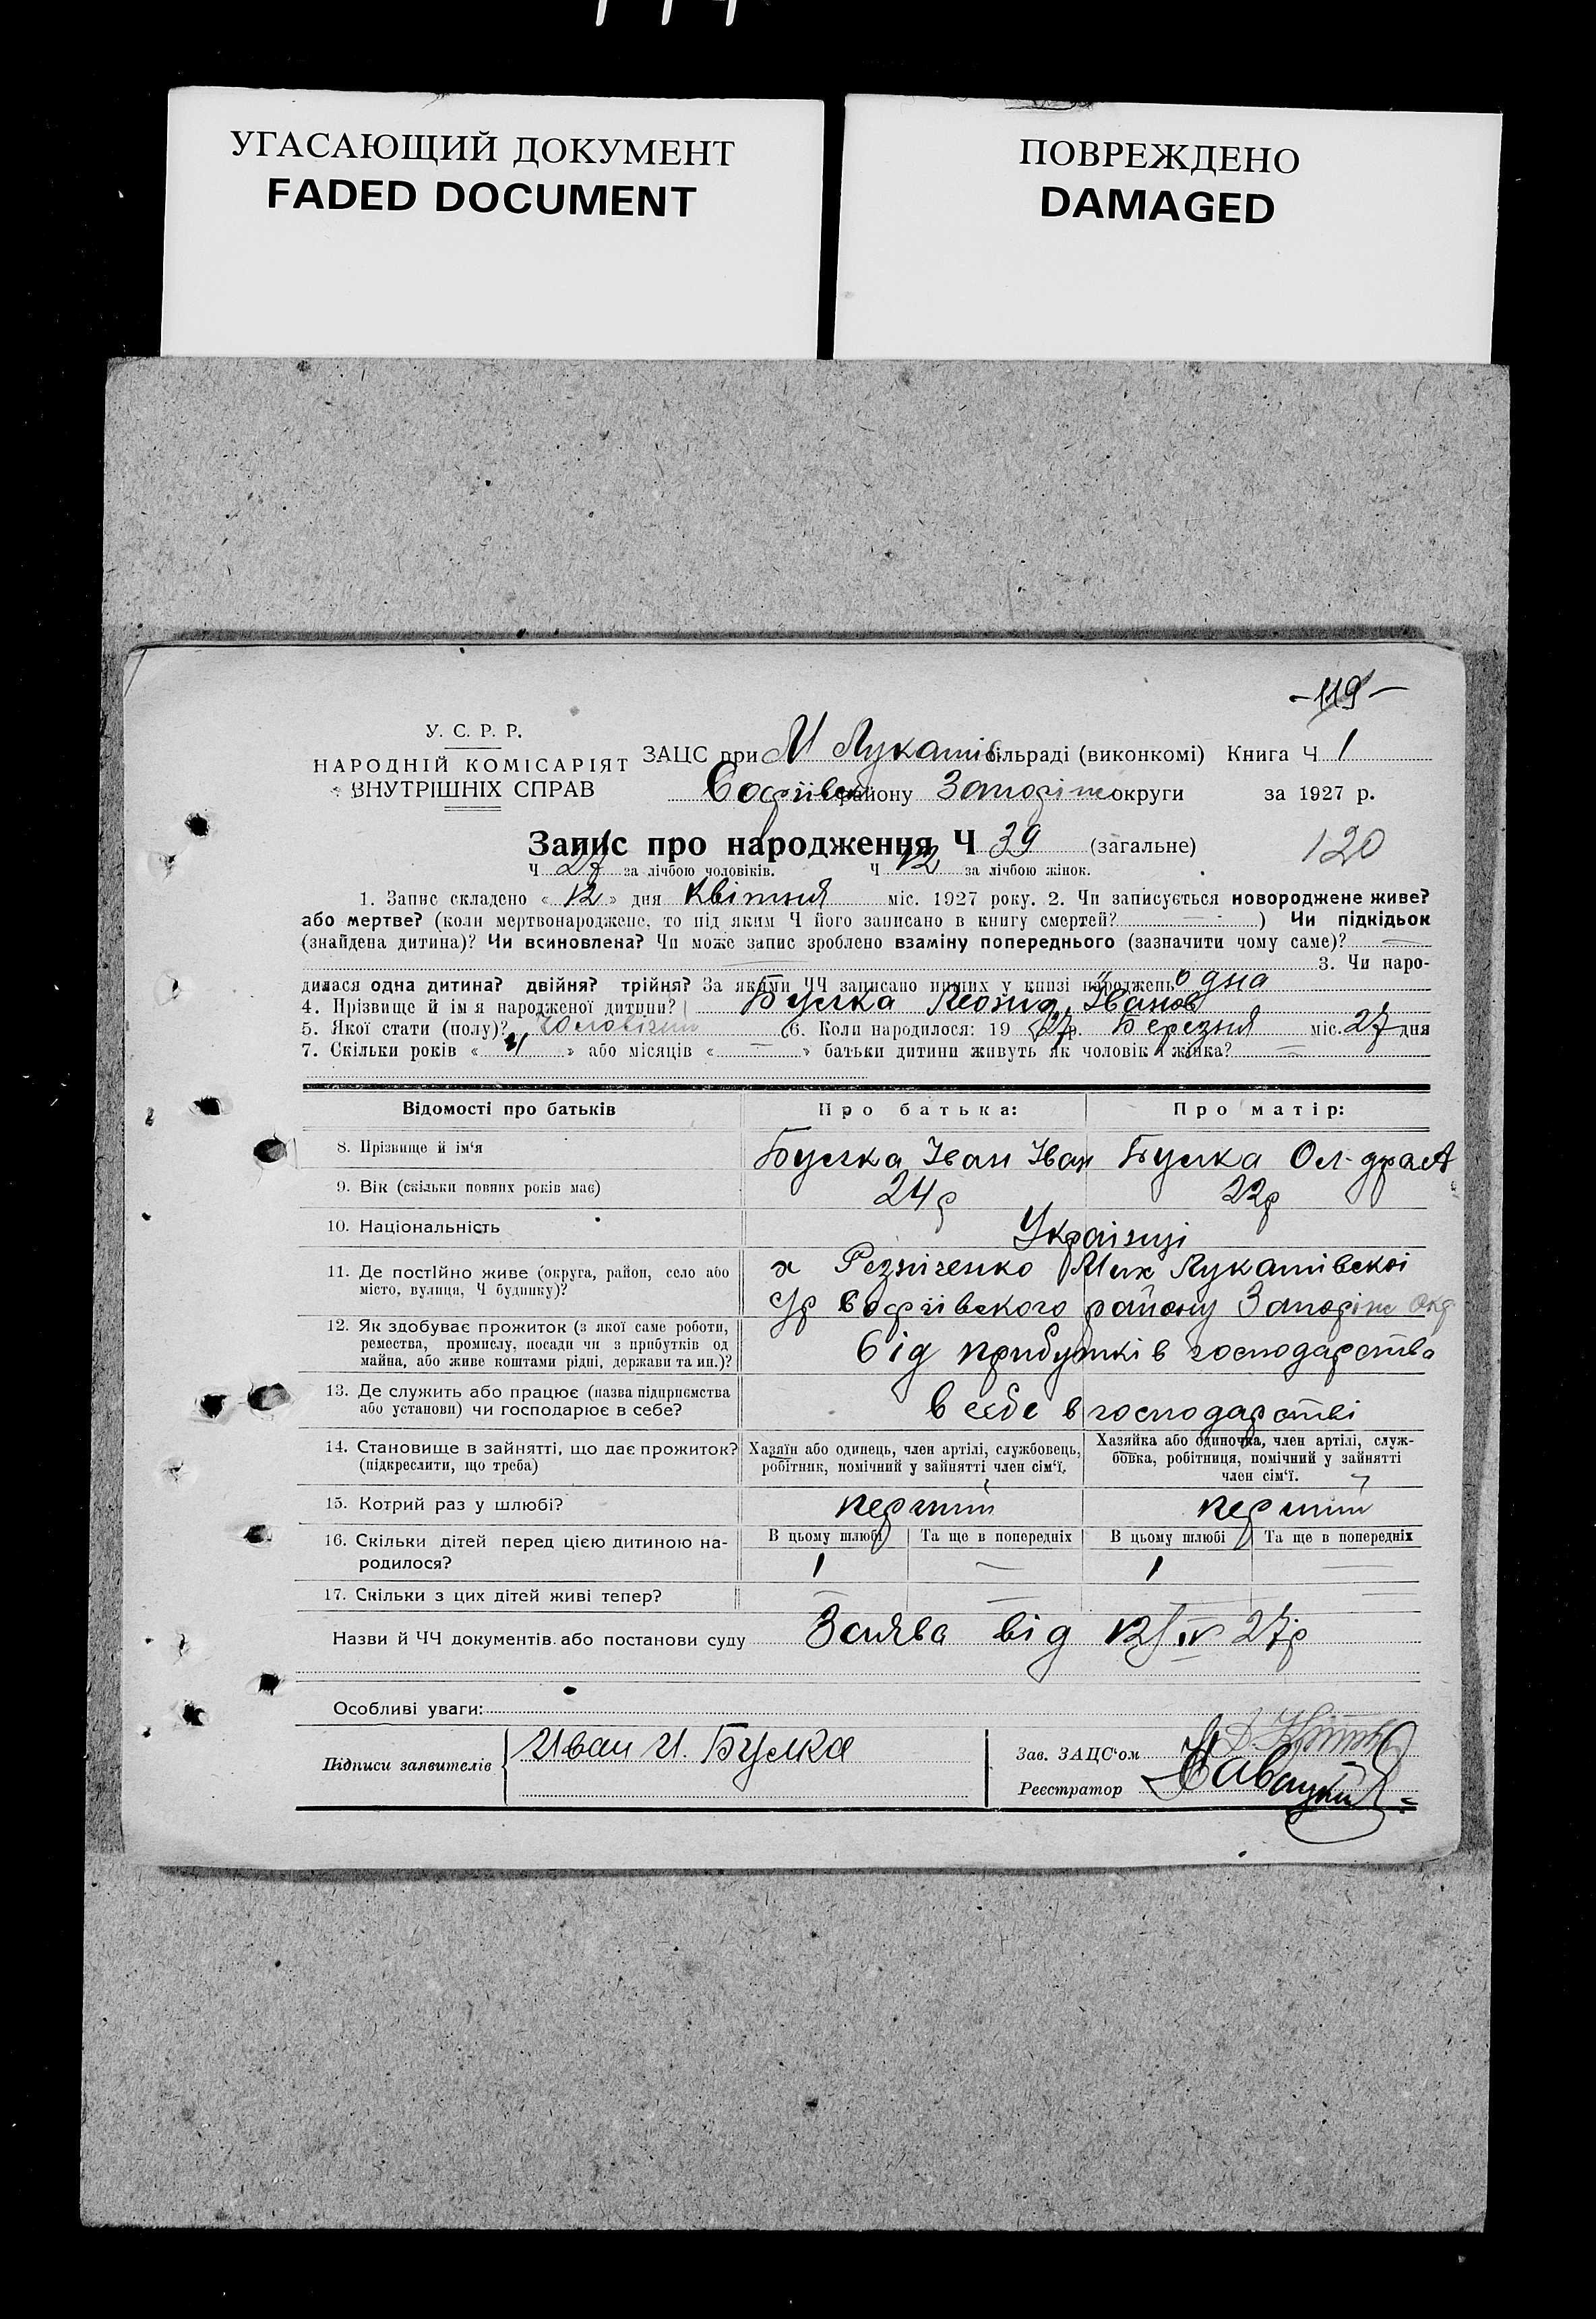 УГАСАЮЩИЙ ДОКУМЕНТ
FADED DOCUMENT
ПОВРЕЖДЕНО
DAMAGED
-119-
У. С. Р. Р.
НАРОДНІЙ КОМІСАРІЯТ
ВНУТРІШНІХ СПРАВ
ЗАЦС при М Лукашів. сільраді (виконкомі) Книга Ч 1
Софіївск району Запоріж округи за 1927 р.
Запис про народження Ч 39 (загальне)
120
Ч 27 за лічбою чоловіків. Ч 12 за лічбою жінок.
1. Запис складено « 12 » дня Квітня міс. 1927 року. 2. Чи записується новороджене живе?
або мертве? (коли мертвонароджене, то під яким Ч його записано в книгу смертей? — ) Чи підкідьок
(знайдена дитина)? Чи всиновлена? Чи може запис зроблено взаміну попереднього (зазначити чому саме)? —
— 3. Чи наро-
дилася одна дитина? двійня? трійня? За якими ЧЧ записано инших у книзі народжень одна
4. Прізвище й ім я народженої дитини? Булка Леонид Іванов
5. Якої стати (полу)? чоловічий 6. Коли народилося: 19 27 р. Березня міс. 27 дня
7. Скільки років « 4 » або місяців « — » батьки дитини живуть як чоловік і жінка? —
Відомості про батьків Про батька: Про матір:
8. Прізвище й ім‘я Булка Іван Іван Булка Ол-дра А
9. Вік (скільки повних років має) 24р 22р
10. Національність Українці
11. Де постійно живе (округа, район, село або
місто, вулиця, Ч будинку)?
х Резніченко Мих Лукашівскоі
с/р Софіівского району Запоріж Окр
12. Як здобуває прожиток (з якої саме роботи,
ремества, промислу, посади чи з прибутків од
майна, або живе коштами рідні, держави та ин.)?
від прибутків господарства
13. Де служить або працює (назва підприємства
або установи) чи господарює в себе?
в себе в господарстві
14. Становище в зайнятті, що дає прожиток?
(підкреслити, що треба)
Хазяїн або одинець, член артілі, службовець,
робітник, помічний у зайнятті член сім‘ї.
Хазяйка або одиночка, член артілі, служ-
бовка, робітниця, помічний у зайнятті
член сім‘ї.
15. Котрий раз у шлюбі? перший перший
16. Скільки дітей перед цією дитиною на-
родилося?
В цьому шлюбі Та ще в попередніх В цьому шлюбі Та ще в попередніх
1 — 1 —
17. Скільки з цих дітей живі тепер? — — —
Назви й ЧЧ документів або постанови суду Заява від 12/IV 27р
Особливі уваги:
Підписи заявителів Иван И. Булка
Зав. ЗАЦС‘ом
Реєстратор